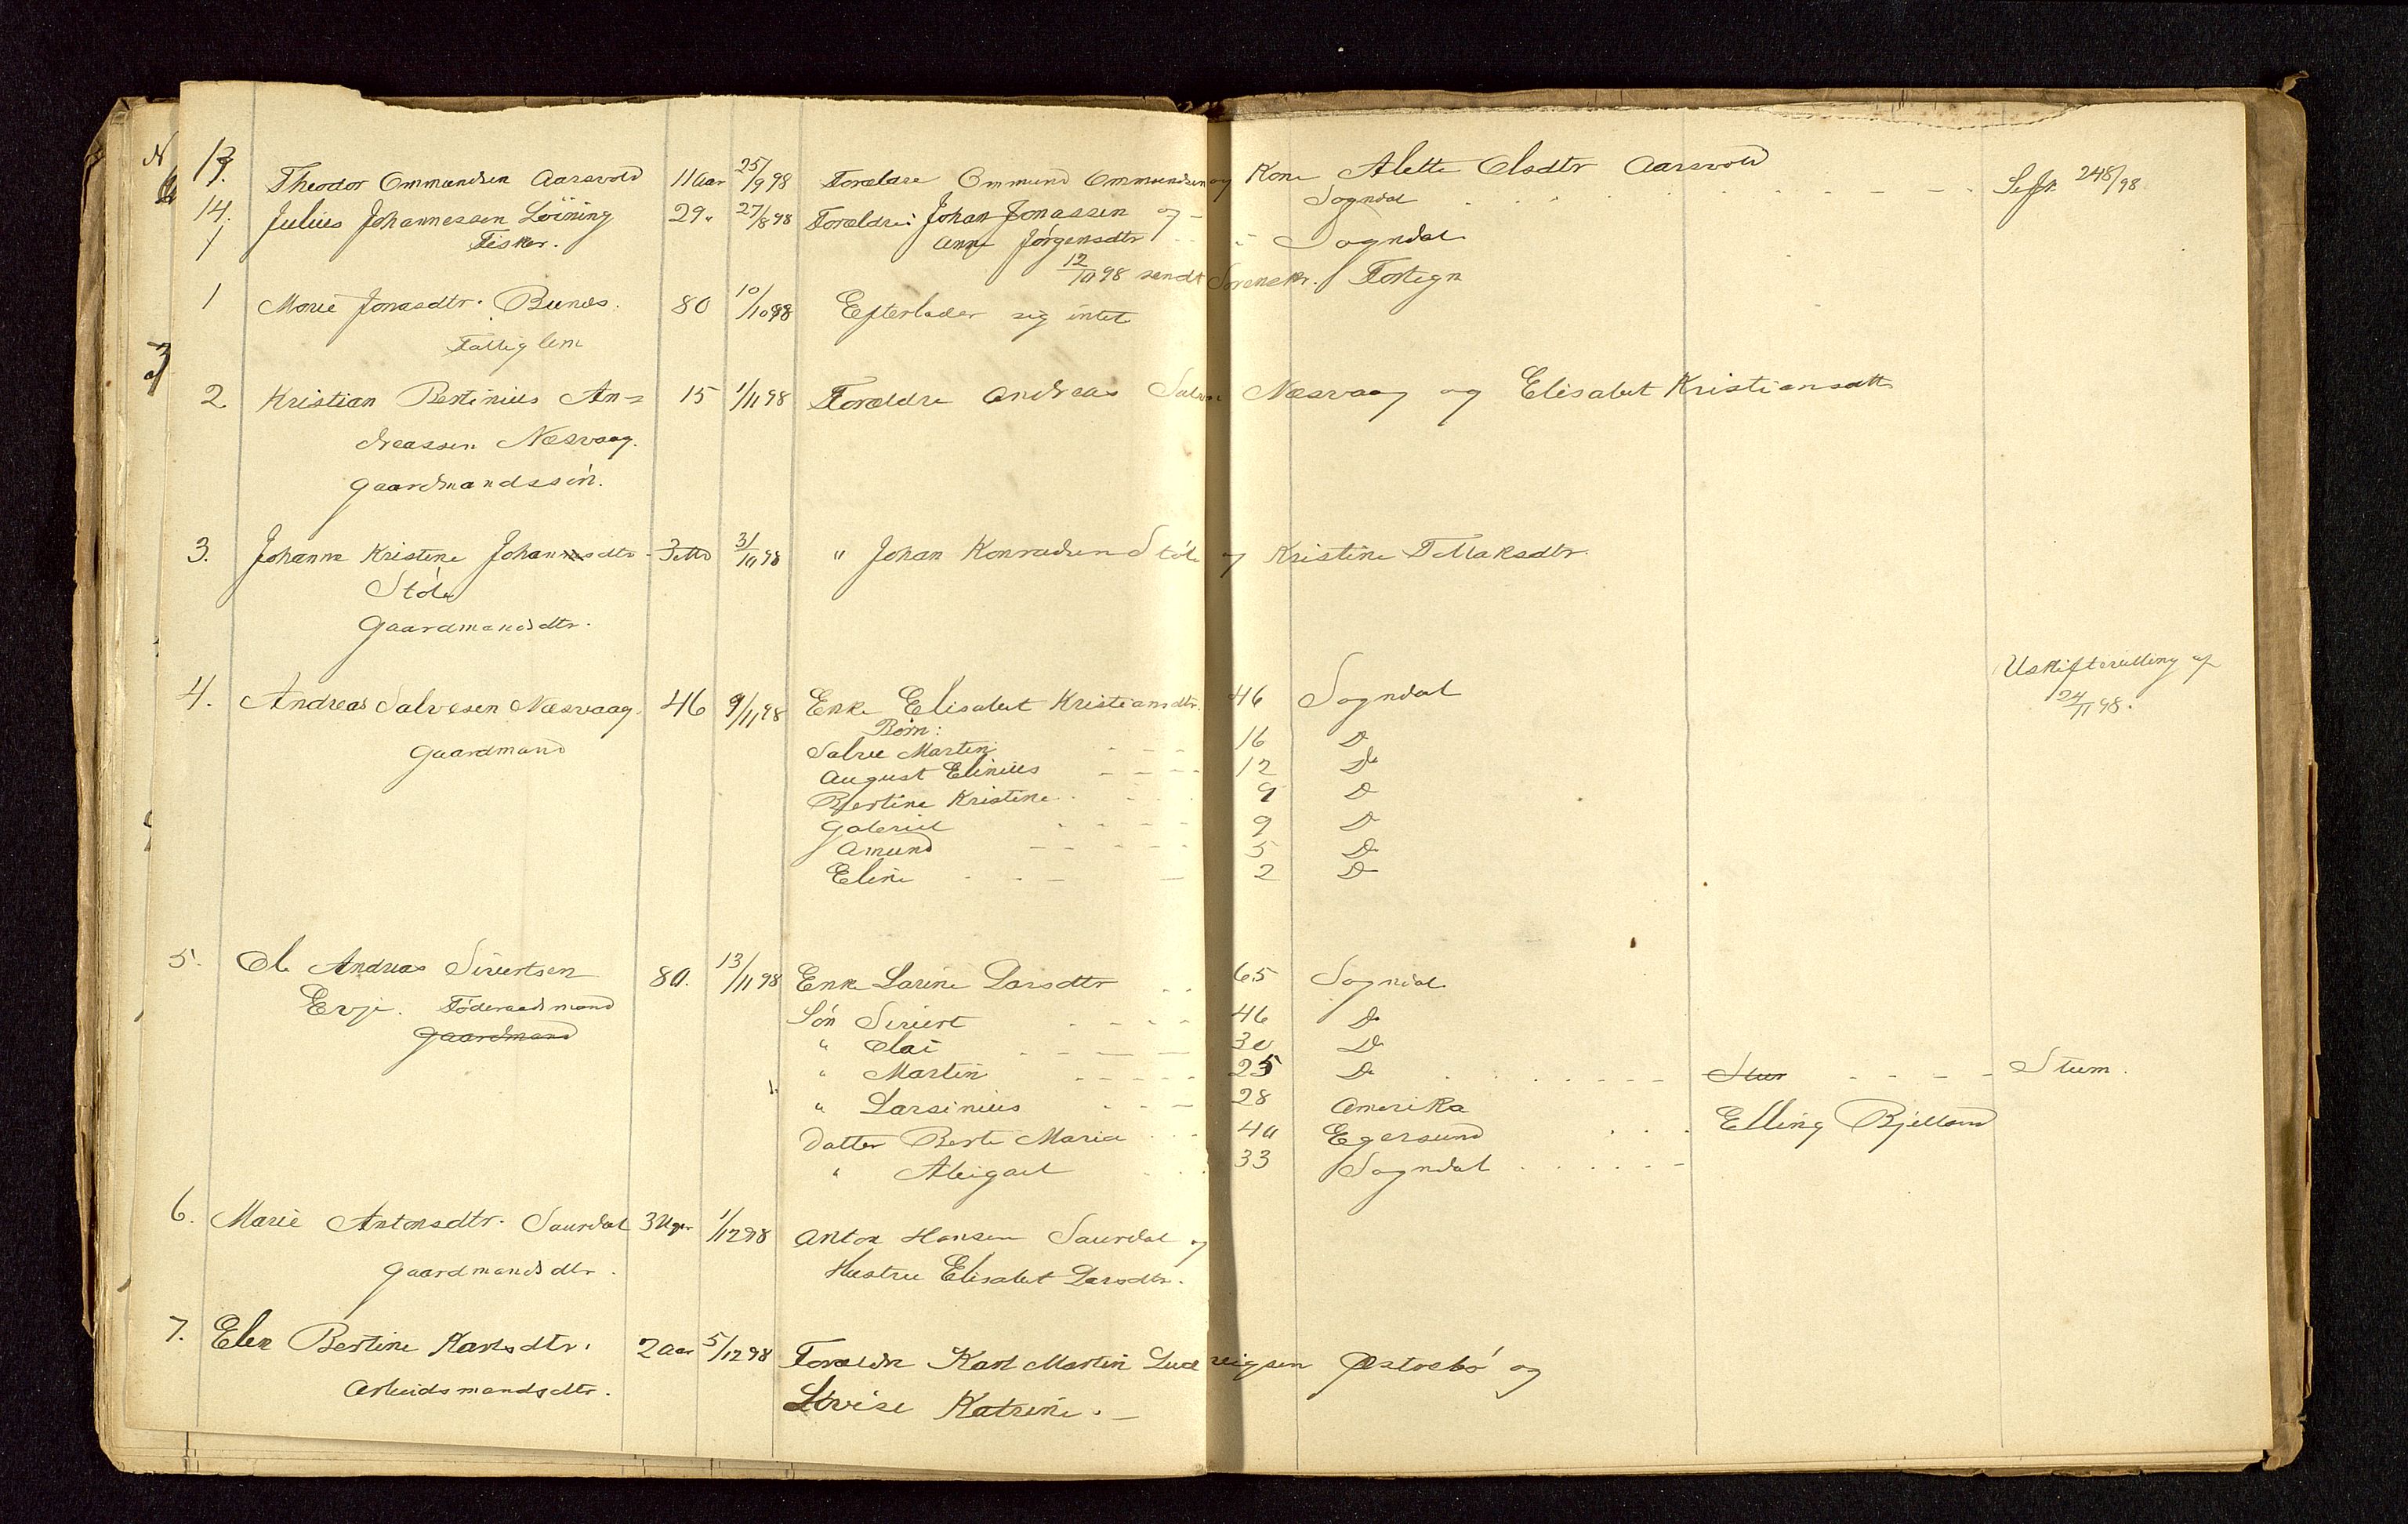 13. Theodor Ommundsen Aarsvold 11 Aar 25/9 98 Forældre Ommund Ommundsen og Kone Alette Olsdtr Aarsvold
Sogndal 248/98
14. Julius Johannessen Löining 29 " 27/8 98 Forældre: Johan Jonassen og -
Fisker. Anne Jörgensdtr Sogndal
12/10 98 sendt Sorenskr. Fortegn
1 Marie Jonasdtr. Bunes. 80 10/10 98 Efterlader sig intet
Fattiglem
2 Kristian Bertinius An= 15 1/11 98 Forældre Andreas Salvesen Næsvaag og Elisabet Kristiansdtr
dreassen Næsvaag.
Gaardmandssön.
3. Johanne Kristine Johannsdtr 31/10 98 " Johan Konradsen Stöle og Kristine TMaksdtr.
Stöle
Gaardmandsdtr.
4. Andreas Salvesen Næsvaag. 46 9/11 98 Enke Elisabet Kristiansdtr. 46 Sogndal Uskiftebevilling af
24/11 98.
Gaardmand Börn:
Salve Martin 16 Do
August Elinius 12 Do
Bertine Kristine 9 Do
Gabriel 9 Do
Amund 5 Do
Eline 2 Do
5. Ole Andreas Sivertsen 80. 13/11 98 Enke Larine Larsdtr 65 Sogndal
Evje. Föderaadsmand
Gaardmand
Sön Sivert 46 Do
" Olai 30 Do
" Martin 25 Do Stum Stum.
" Larsinius 28 Amerika
Datter Berte Maria 40 Egersund Elling Bjelland
" Abigael 33 Sogndal
6. Marie Antonsdtr. Saurdal 3 Uger 1/12 98 Anton Hansen Saurdal og
Gaardmandsdtr. Hustru Elisabet Larsdtr.
7. Elen Bertine Karlsdtr. 2 Aar 5/12 98 Forældre Karl Martin Ludvigsen Østrebö og
Arbeidsmandsdtr. Lovise Katrine. -